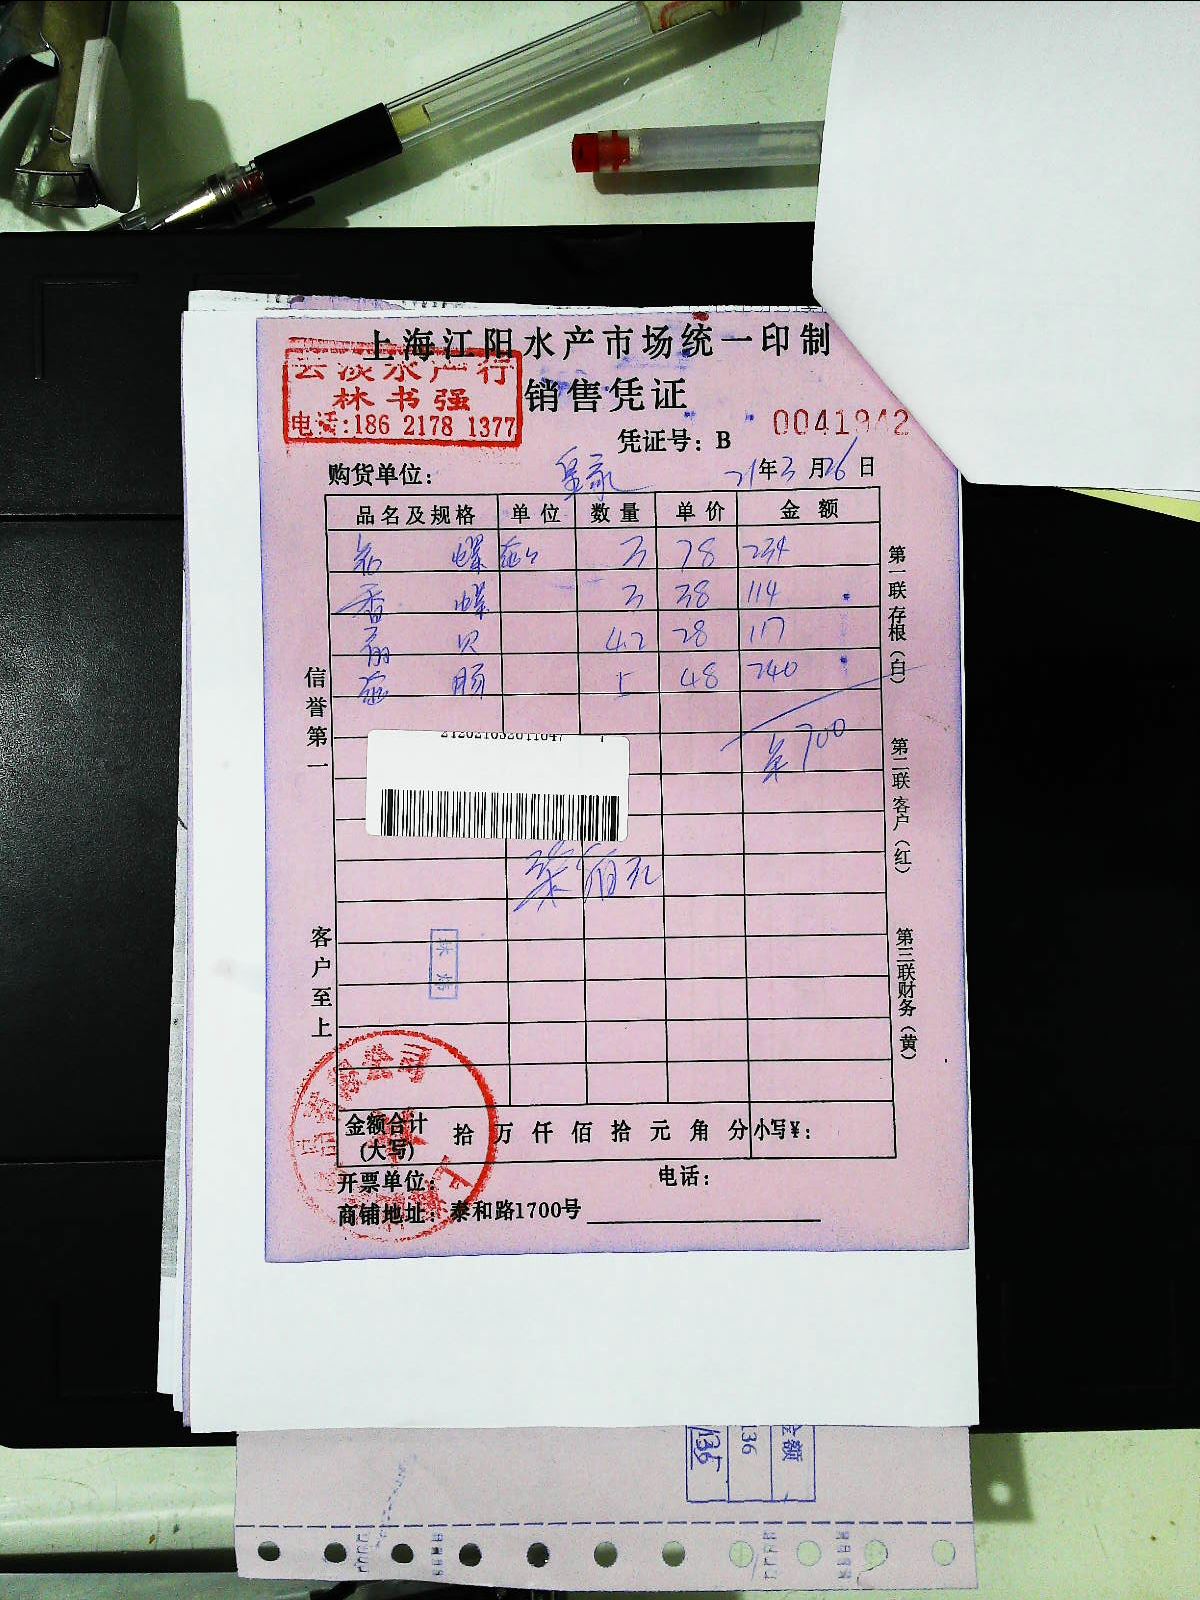 上海江阳水产市场统一印制
云波水产行
林书强
电话:186 2178 1377
销售凭证
凭证号: B 0041942
购货单位: 21年3月26日
品名及规格 单位 数量 单价 金额
螺 3 78 234
香螺 3 38 114
贝 4.2 28 117
肠 5 48 240
700
信誉第一
客户至上
第一联存根(白)
第二联客户(红)
第三联财务(黄)
金额合计(大写) 拾万仟佰拾元角分 小写¥:
开票单位: 电话:
商铺地址: 泰和路1700号
金额
136
136